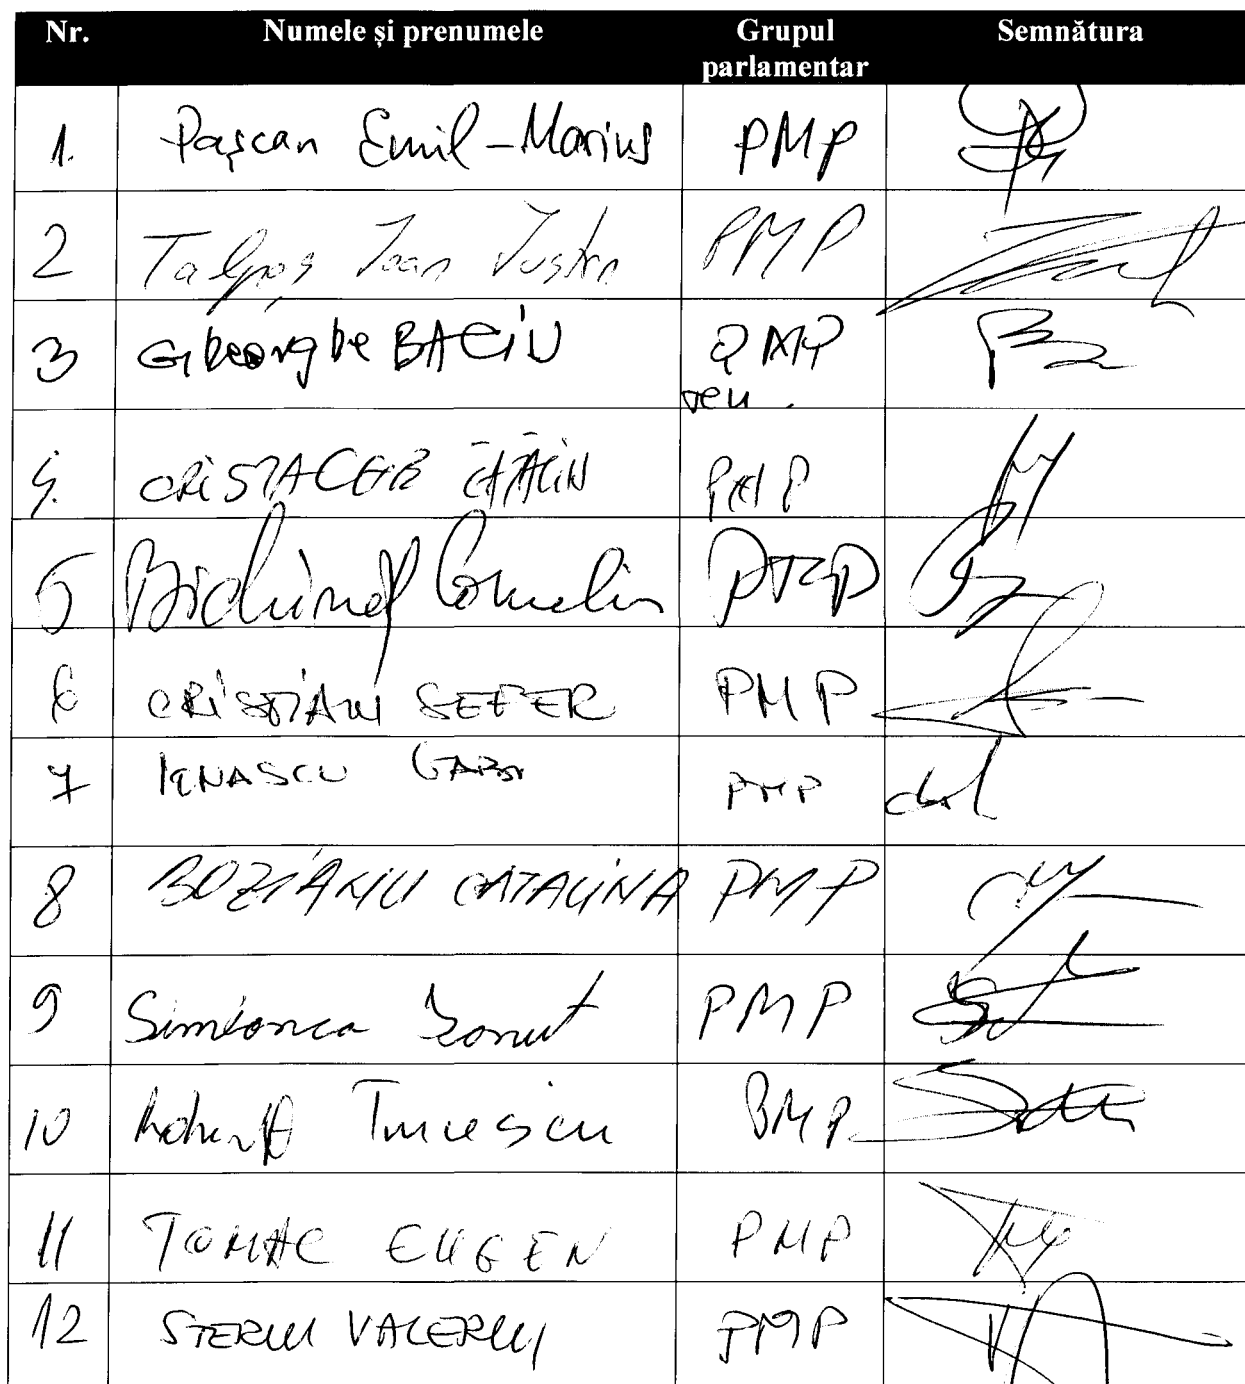 Nr. Numele și prenumele Grupul parlamentar Semnătura
1. Pașcan Emil-Marius PMP
2 Talpoș Ioan Iustin PMP
3 Gheorghe BACIU PMP
4. CĂTĂLIN PMP
5 Bichineț Corneliu PMP
6 CRISTIAN SEFER PMP
7 IGNASCU GABI PMP
8 BOZIANU CATALINA PMP
9 Simionca Ionut PMP
10 Robert Turcescu PMP
11 TOMAC EUGEN PMP
12 STERIU VALERIU PMP